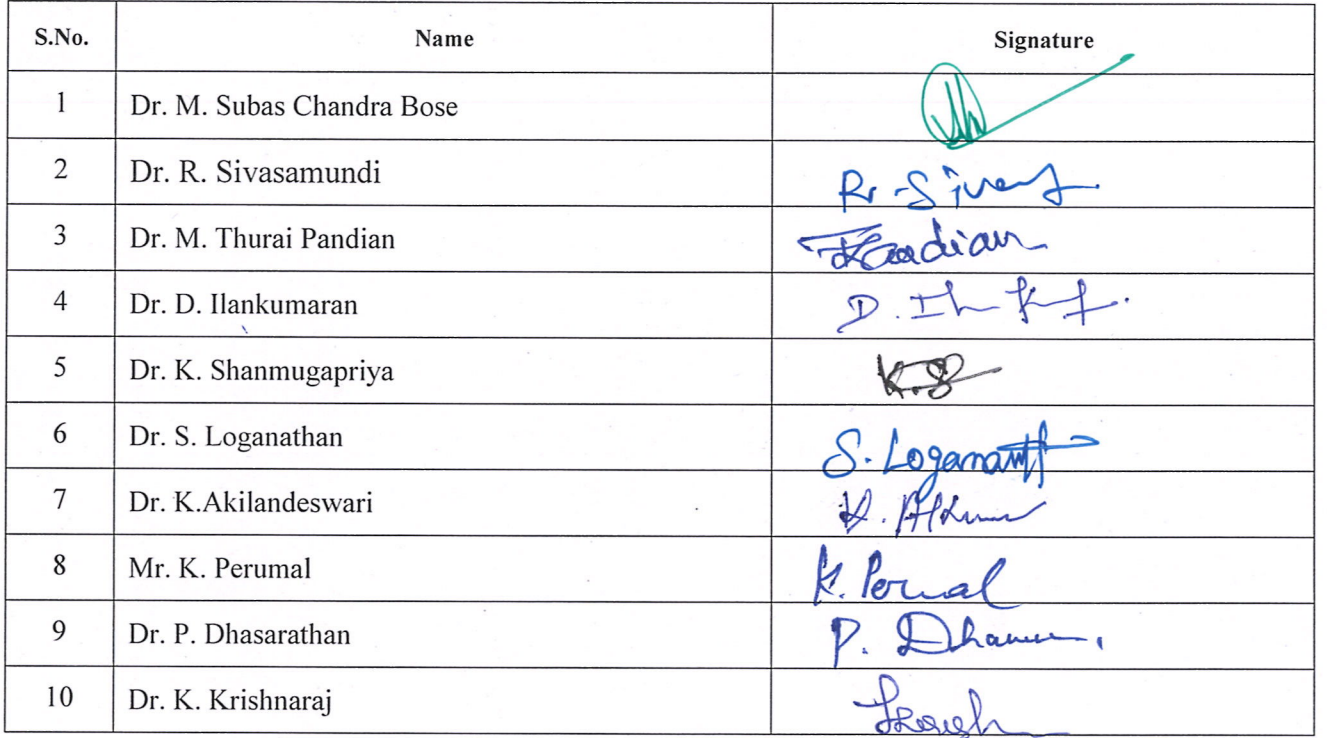 S.No. Name Signature
1 Dr. M. Subas Chandra Bose
2 Dr. R. Sivasamundi R. Siva
3 Dr. M. Thurai Pandian Pandian
4 Dr. D. Ilankumaran D.
5 Dr. K. Shanmugapriya K.S
6 Dr. S. Loganathan S. Loganath
7 Dr. K.Akilandeswari K.
8 Mr. K. Perumal K. Perumal
9 Dr. P. Dhasarathan P.
10 Dr. K. Krishnaraj